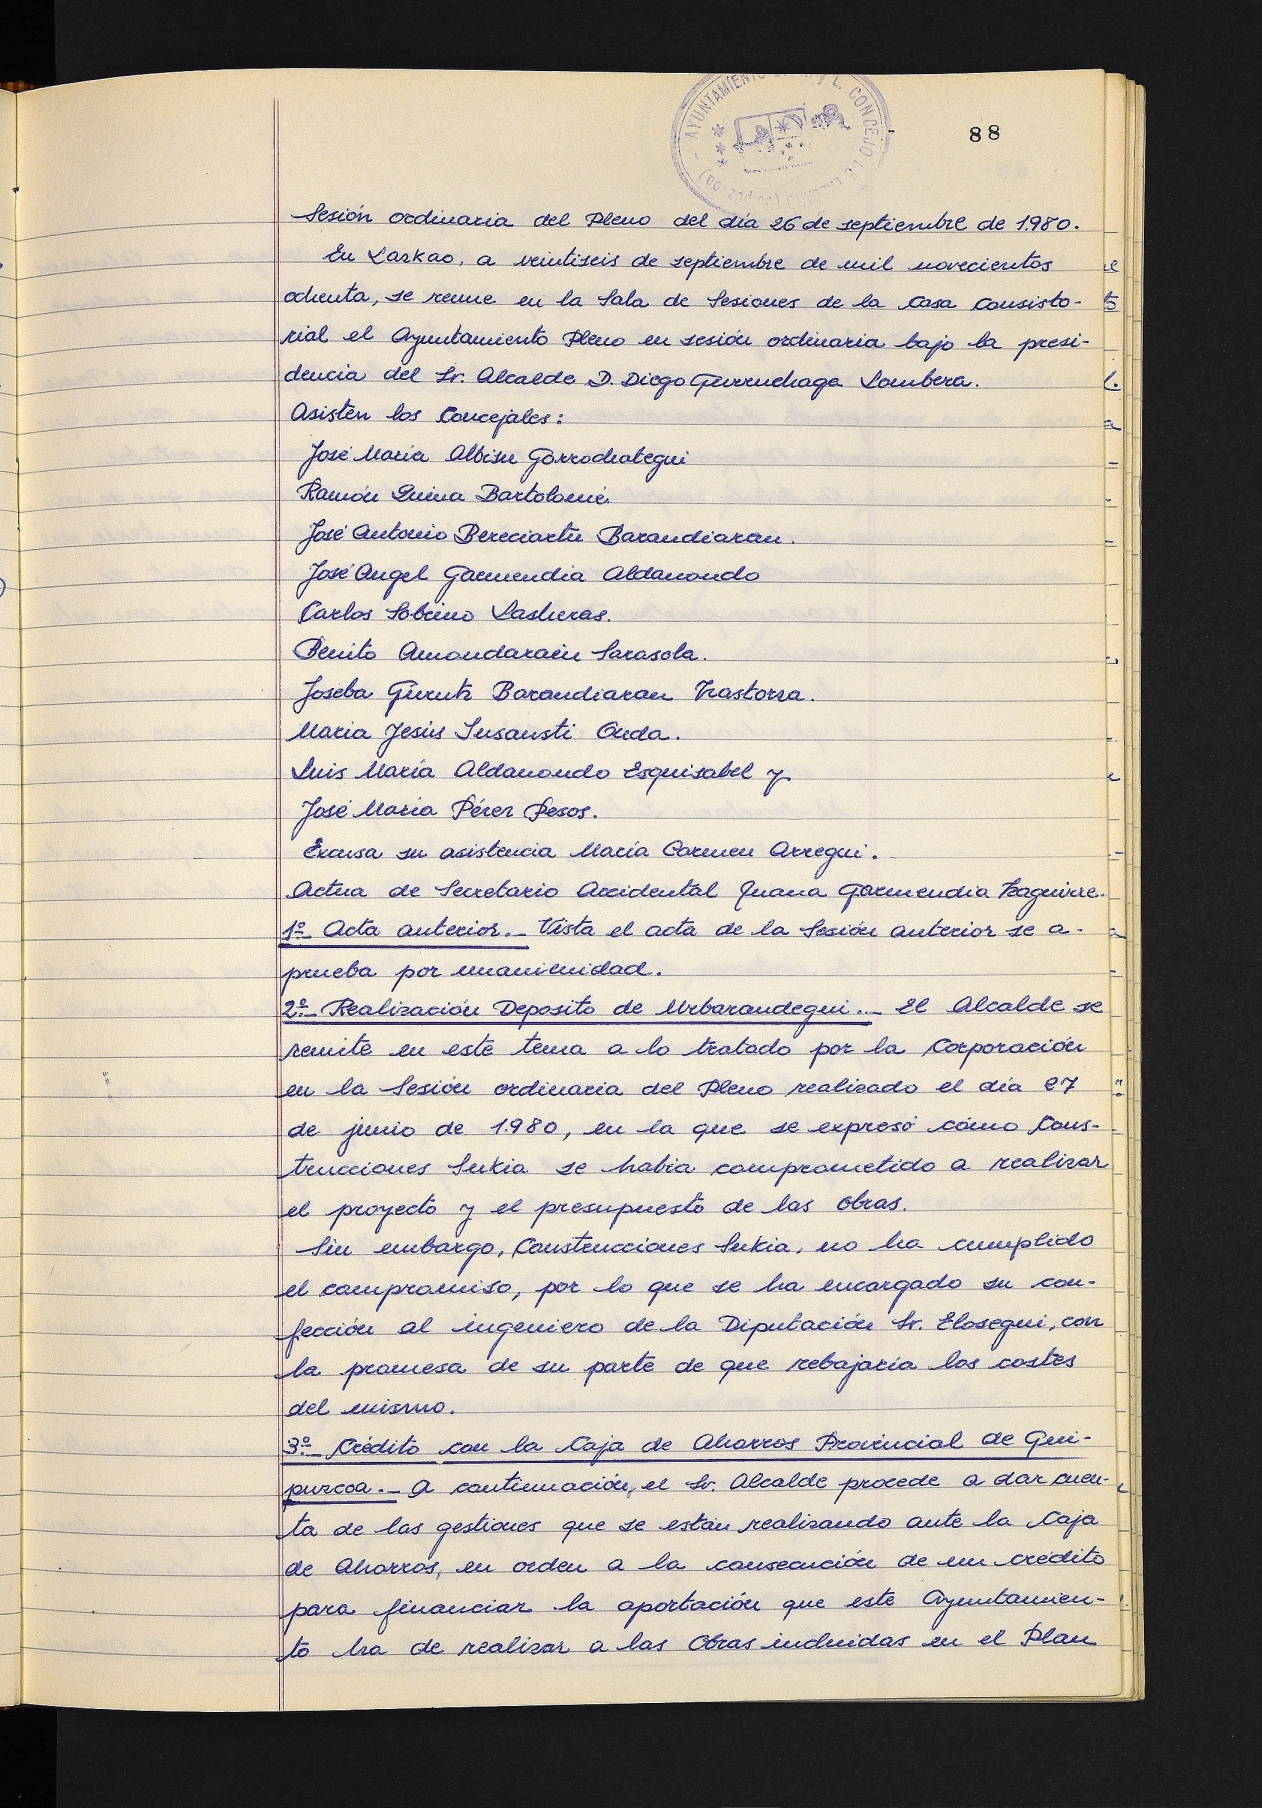 88
AYUNTAMIENTO
L. CONCEJO
Sesión ordinaria del Pleno del día 26 de septiembre de 1.980.
En Lazkao, a veintiseis de septiembre de mil novecientos
ochenta, se reune en la Sala de Sesiones de la Casa Consisto-
rial el Ayuntamiento Pleno en sesión ordinaria bajo la presi-
dencia del Sr. Alcalde D. Diego Gurruchaga Lombera.
Asisten los Concejales:
José María Albisu Gorrochategui
Ramón Quina Bartolomé
José Antonio Bereciartu Barandiaran.
José Angel Garmendia Aldanondo
Carlos Sobrino Lasheras.
Benito Amondarain Sarasola.
Joseba Gurutz Barandiaran Irastorza.
Maria Jesús Insausti Onda.
Luis María Aldanondo Esquisabel y
José María Pérez Pesos.
Excusa su asistencia María Carmen Arregui.
Actua de Secretario Accidental Juana Garmendia Izaguirre.
1º- Acta anterior.- Vista el acta de la Sesión anterior se a-
prueba por unanimidad.
2º- Realización Deposito de Urbarandegui.- El Alcalde se
remite en este tema a lo tratado por la Corporación
en la Sesión ordinaria del Pleno realizado el día 27
de junio de 1.980, en la que se expresó cómo Cons-
trucciones Sukia se había comprometido a realizar
el proyecto y el presupuesto de las obras.
Sin embargo, Construcciones Sukia, no ha cumplido
el compromiso, por lo que se ha encargado su con-
fección al ingeniero de la Diputación Sr. Elosegui, con
la promesa de su parte de que rebajaría los costes
del mismo.
3º- Crédito con la Caja de Ahorros Provincial de Gui-
puzcoa.- A continuación, el Sr. Alcalde procede a dar cuen-
ta de las gestiones que se están realizando ante la Caja
de Ahorros, en orden a la consecución de un crédito
para financiar la aportación que este Ayuntamien-
to ha de realizar a las Obras incluidas en el Plan